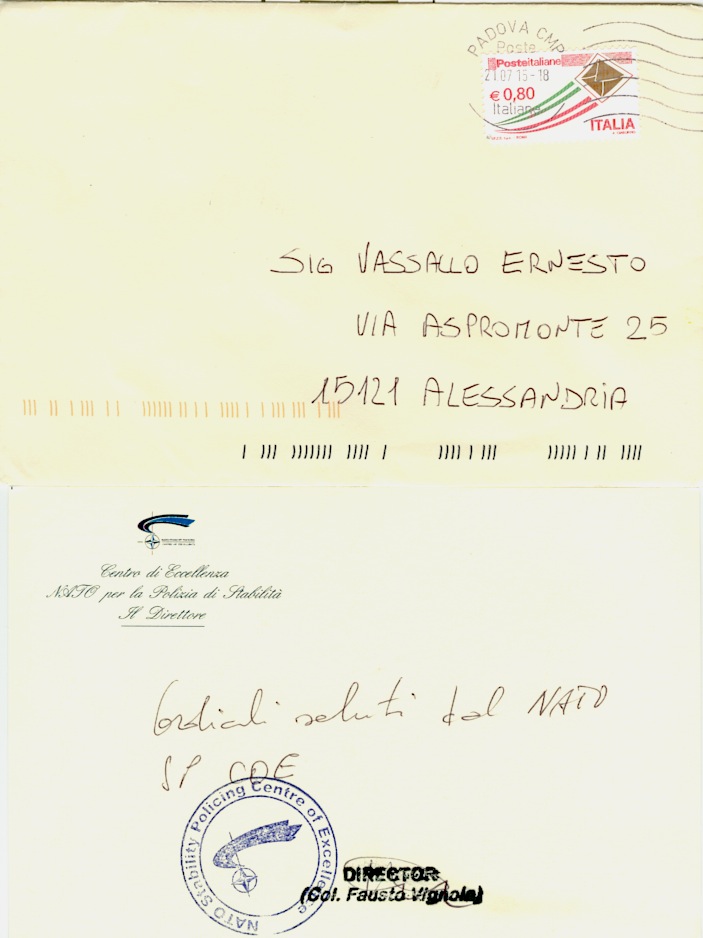 PADOVA CMP
Poste
Posteitaliane
21 07 15-18
€ 0,80
Italiane
ITALIA
SIG VASSALLO ERNESTO
VIA ASPROMONTE 25
15121 ALESSANDRIA
Centro di Eccellenza
NATO per la Polizia di Stabilità
Il Direttore
Cordiali saluti dal NATO
SP COE
NATO Stability Policing Centre of Excellence
DIRECTOR
(Col. Fausto Vignola)